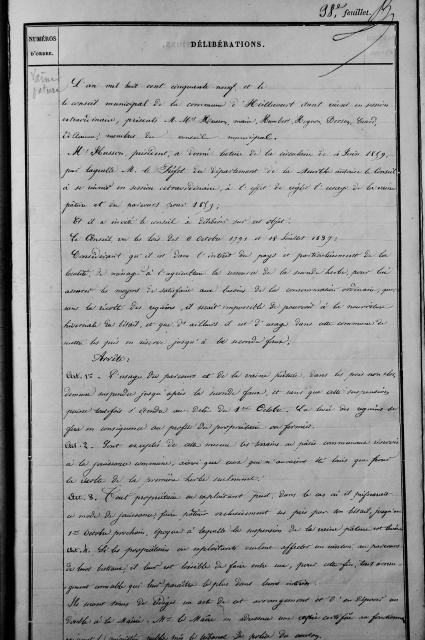 98e feuillet.
NUMÉROS D'ORDRE.
DÉLIBÉRATIONS.
Vaine pature
L'an mil huit cent cinquante neuf, et le
le conseil municipal de la commune d' étant réuni en session
extraordinaire, présents M. Mrs Husson, maire, Humbert,
membres du conseil municipal.
Mr Husson, président, a donné lecture de la circulaire du 4 Juin 1859,
par laquelle M. le Préfet du département de la Meurthe autorise le Conseil
à se réunir en session extraordinaire, à l'effet de régler l'usage de la vaine
pâture et du parcours pour 1859;
Et il a invité le conseil à délibérer sur cet objet.
Le Conseil, vu les lois des 6 Octobre 1791 et 18 Juillet 1837;
Considérant qu'il est dans l'intérêt du pays et particulièrement de la
localité, de ménager à l'agriculture la ressource de la seconde herbe, pour lui
assurer les moyens de satisfaire aux besoins de la consommation ordinaire; que,
sans la récolte des regains, il serait impossible de pourvoir à la nourriture
hivernale du bétail, et que d'ailleurs il est d'usage dans cette commune de
mettre les prés en réserve jusqu'à la seconde faux;
Arrête:
Art. 1er. L'usage du parcours et de la vaine pâture, dans les prés non clos,
demeure suspendu jusqu'après la seconde faux, et sans que cette suspension
puisse toutefois s'étendre au delà du 1er Octobre. La levée des regains se
fera en conséquence au profit des propriétaires ou fermiers.
Art. 2. Sont exceptés de cette mesure les terrains en pâtis communaux réservés
à la jouissance commune, ainsi que ceux qui n'auraient été loués que pour
la récolte de la première herbe seulement.
Art. 3. Tout propriétaire ou exploitant peut, dans le cas où il préférerait
ce mode de jouissance, faire pâturer exclusivement ses prés par son bétail, jusqu'au
1er Octobre prochain, époque à laquelle la suspension de la vaine pâture est
Art. 4. Si les propriétaires ou exploitants veulent affecter en commun au parcours
de leurs bestiaux, il leur est loisible de faire entre eux, pour cette fin, tout arran-
gement amiable qui leur paraîtra le plus dans leurs intérêts.
Ils seront tenus de rédiger un acte de cet arrangement et d'en déposer un
double à la Mairie. M. le Maire en adressera une copie certifiée au fonctionnaire
ministère public près le tribunal de police du canton.